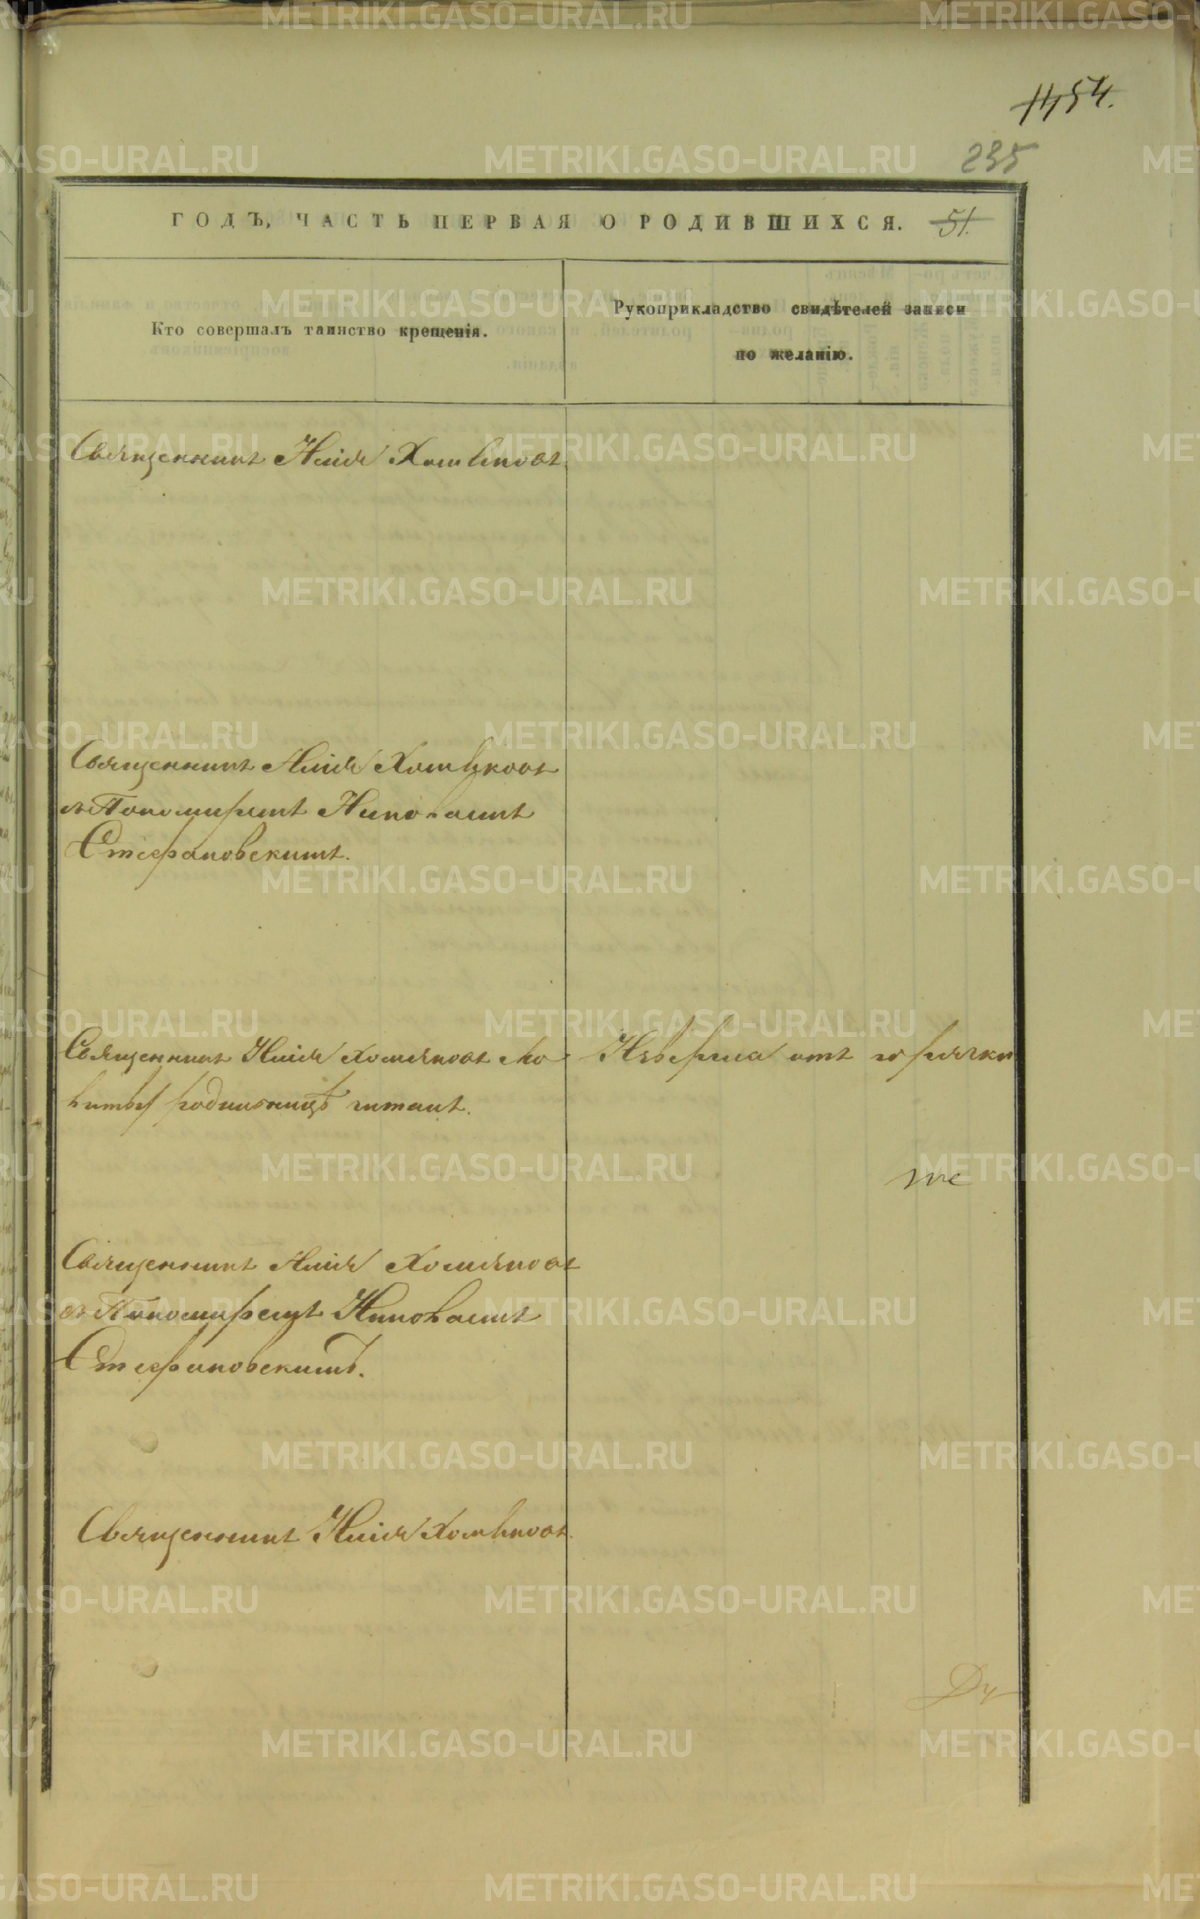 1454.
235
ГОДЪ, ЧАСТЬ ПЕРВАЯ О РОДИВШИХСЯ. 51.
Кто совершалъ таинство крещенія.
Рукоприкладство свидѣтелей записи
по желанію.
Священникъ Илія Хомяковъ
Священникъ Илія Хомяковъ
съ Пономаремъ
Стефановскимъ.
Священникъ Илія Хомяковъ Мо-
литву родильницѣ читалъ.
отъ горячки
Священникъ Илія Хомяковъ
съ Пономаремъ
Стефановскимъ.
Священникъ Илія Хомяковъ
METRIKI.GASO-URAL.RU